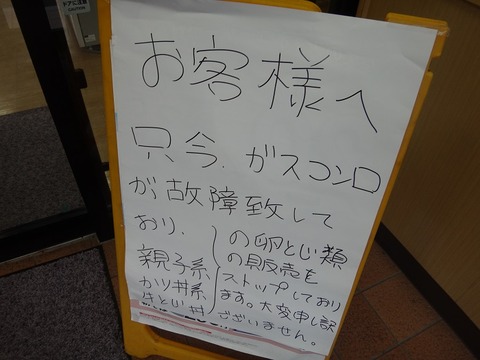 お客様へ
只今、ガスコンロ
が故障致して
おり、
親子系
カツ丼系
牛とじ丼
の卵とじ類
の販売を
ストップしており
ます。大変申し訳
ございません。